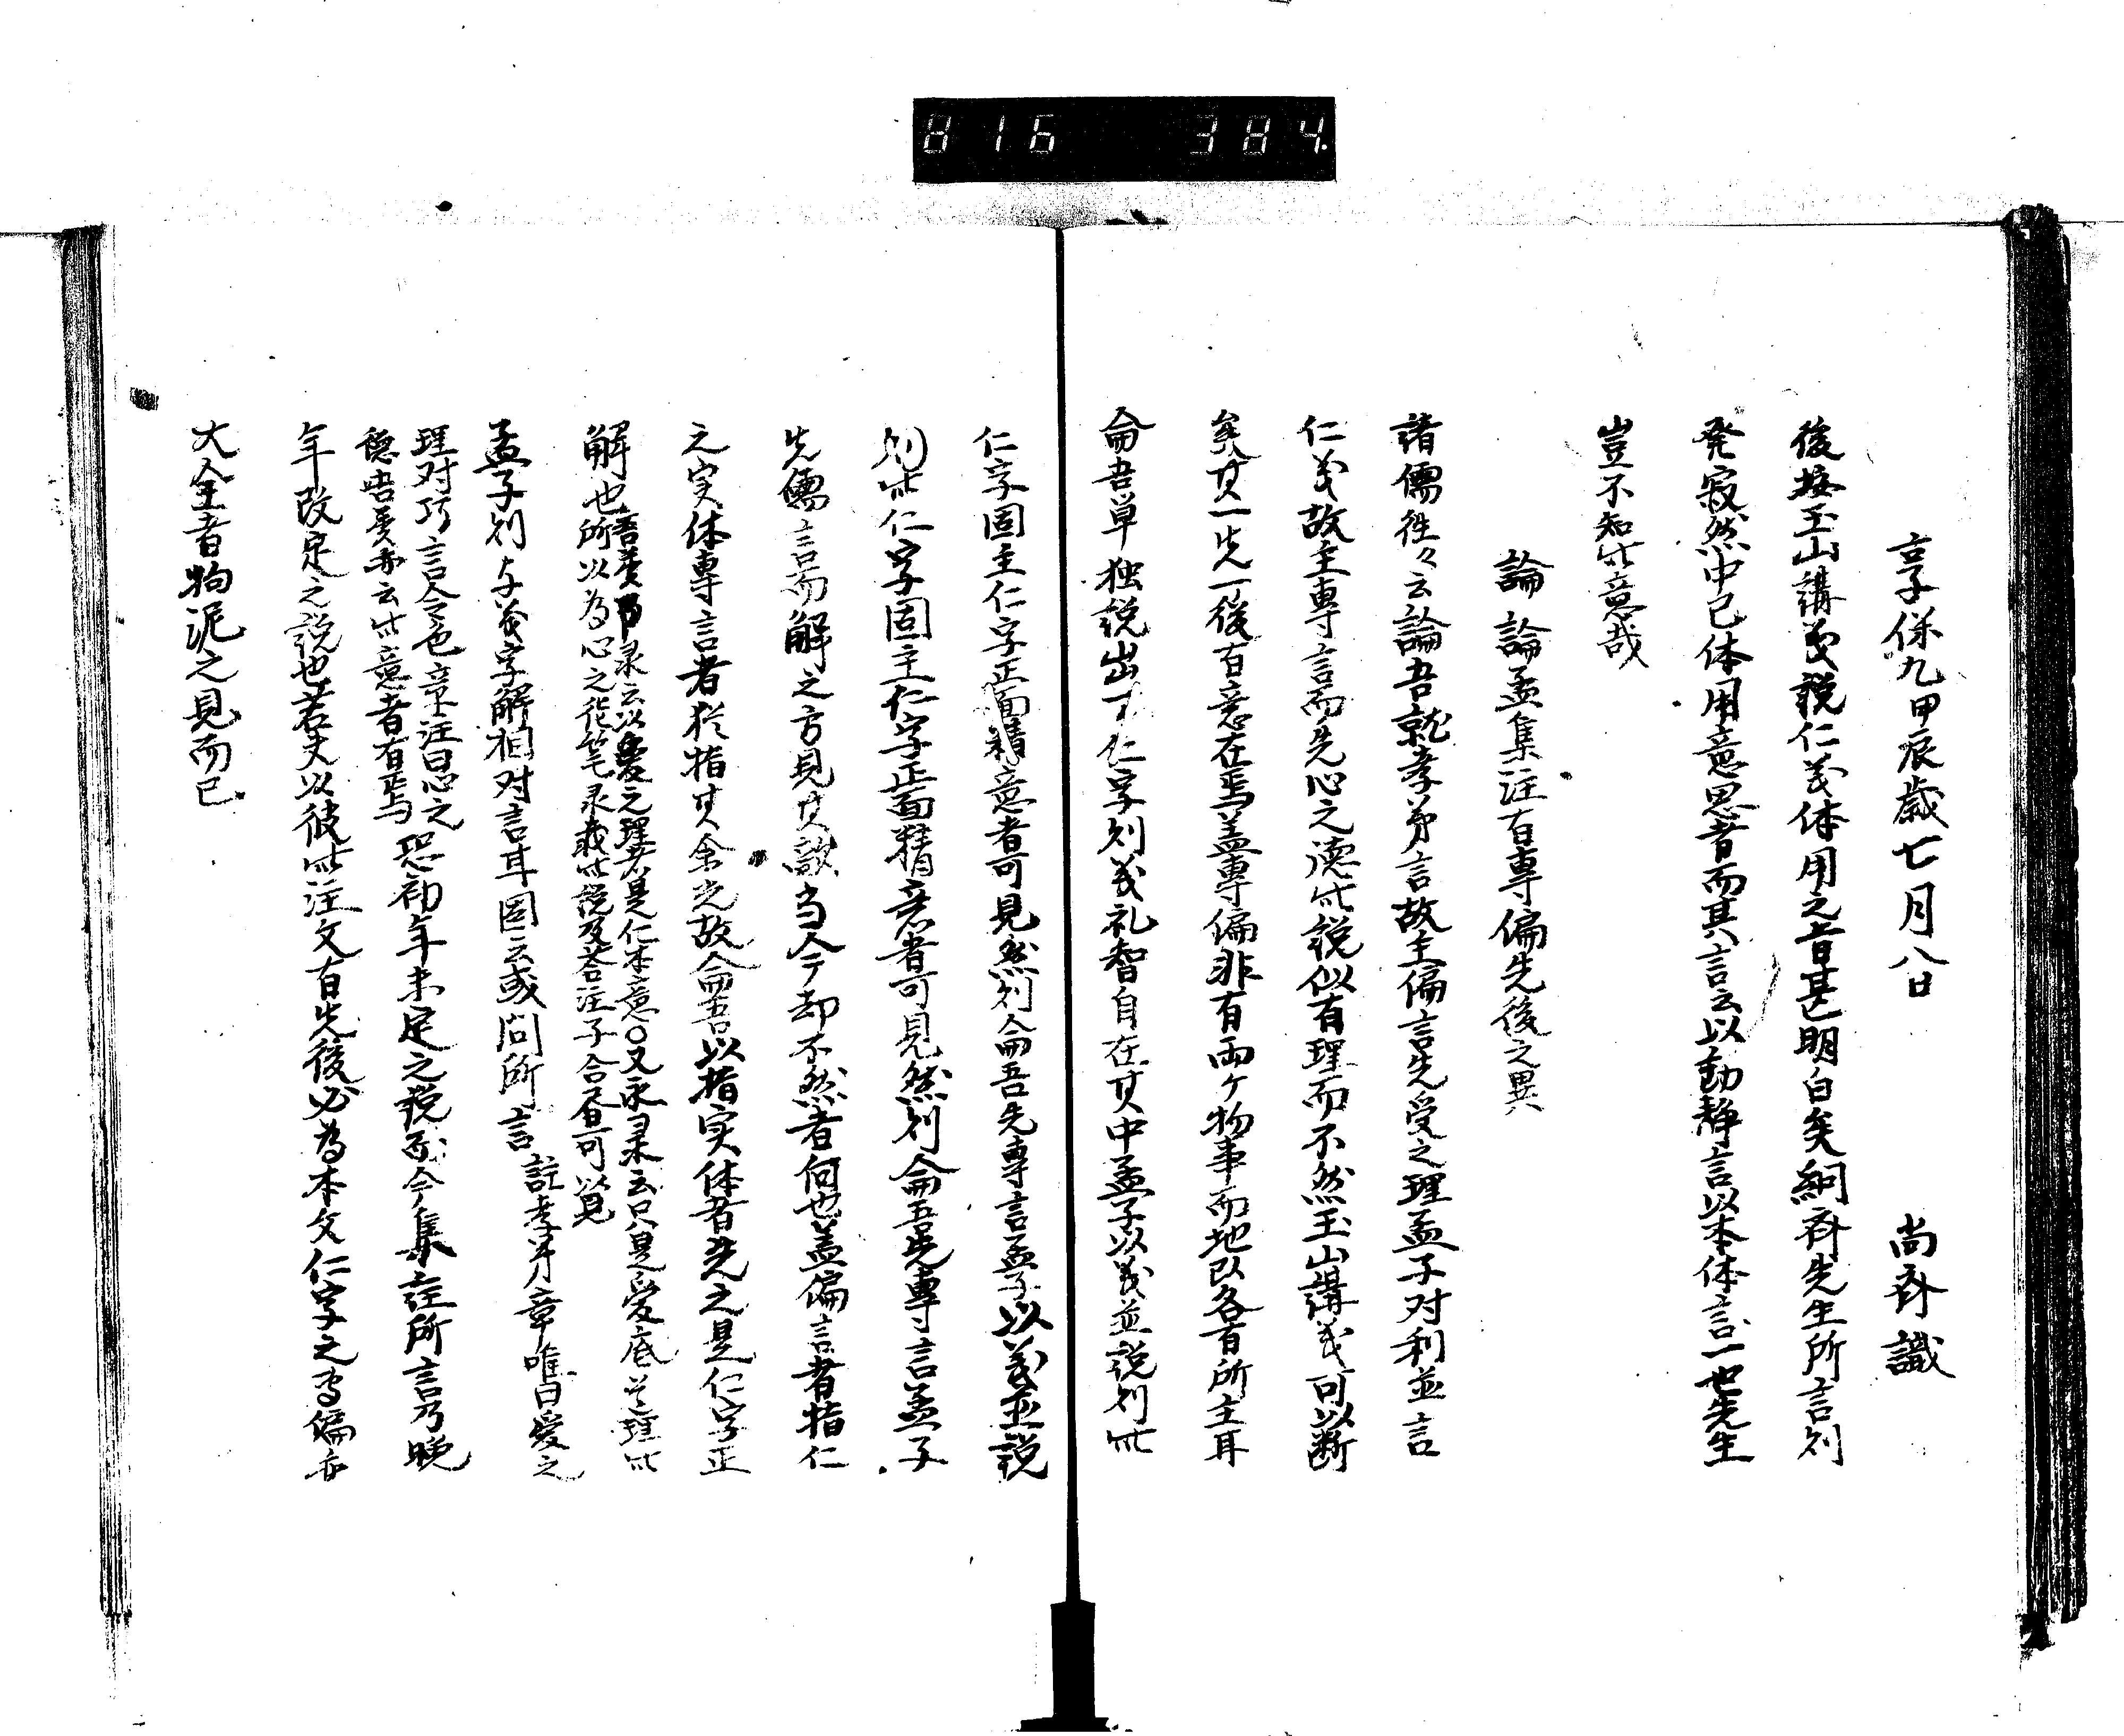 816 384
享保九甲辰歳七月八日 尚斎識
後按玉山講義説仁義体用之旨甚明白矣絅斎先生所言則
発寂然中已体用意思者而其言云以動静言以本体言一也先生
豈不知此意哉
論論孟集注有専偏先後之異
諸儒往々云論吾就孝弟言故主偏言先愛之理孟子対利並言
仁義故主専言而先心之徳此説似有理而不然玉山講義可以断
矣其一先一後有意在焉蓋専偏非有両ケ物事而地以各有所主耳
侖吾単独説出一仁字則義礼智自在其中孟子以義並説則此
仁字固主仁字正面精意者可見然則侖吾先専言孟子以義並説
則此仁字固主仁字正面精意者可見然則侖吾先専言孟子
先儒言而解之方見其認当今却不然者何也蓋偏言者指仁
之実体専言者猶指其余光故侖吾以指実体者先之是仁字正
解也吾類師录云以愛之理者是仁本意○又永录云只是愛底之理此
所以為心之徳筆录載此説及答注子合書可以見
孟子則与義字解相対言耳固云或問所言註孝弟章唯曰愛之
理対巧言令色章注曰心之
徳吾類亦云此意者有焉恐初年未定之説至今集註所言乃晩
年改定之説也若夫以彼此注文有先後必為本文仁字之専偏亦
大全者拘泥之見而已